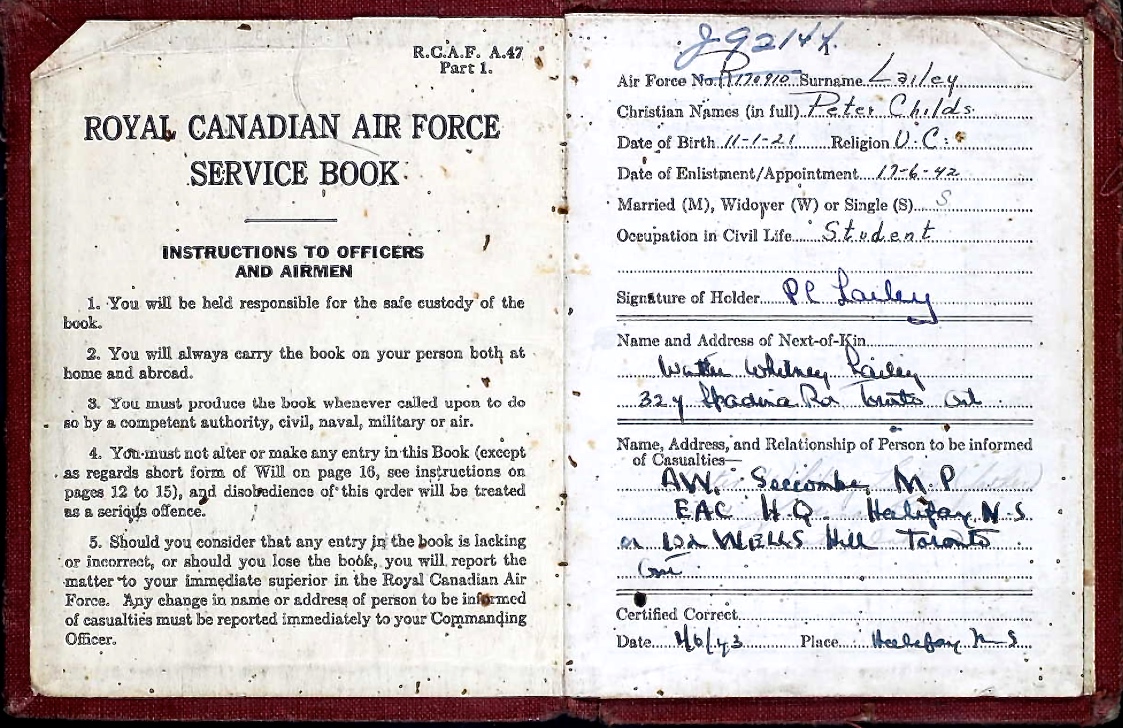 R.C.A.F. A.47
Part 1.
ROYAL CANADIAN AIR FORCE
SERVICE BOOK
INSTRUCTIONS TO OFFICERS
AND AIRMEN
1. You will be held responsible for the safe custody of the
book.
2. You will always carry the book on your person both at
home and abroad.
3. You must produce the book whenever called upon to do
so by a competent authority, civil, naval, military or air.
4. You must not alter or make any entry in this Book (except
as regards short form of Will on page 16, see instructions on
pages 12 to 15), and disobedience of this order will be treated
as a serious offence.
5. Should you consider that any entry in the book is lacking
or incorrect, or should you lose the book, you will report the
matter to your immediate superior in the Royal Canadian Air
Force. Any change in name or address of person to be informed
of casualties must be reported immediately to your Commanding
Officer.
J92144
Air Force No. R170910 Surname Lailey
Christian Names (in full) Peter Childs
Date of Birth 11-1-21 Religion U.C.
Date of Enlistment/Appointment 17-6-42
Married (M), Widower (W) or Single (S) S
Occupation in Civil Life Student
Signature of Holder PC Lailey
Name and Address of Next-of-Kin
Walter Whitney Lailey
327 Spadina Rd Toronto Ont
Name, Address, and Relationship of Person to be informed
of Casualties—
AW. Seccombe M.P
EAC H.Q. Halifax N.S
or WELLS Hill Toronto
Ont
Certified Correct
Date Place Halifax N.S.